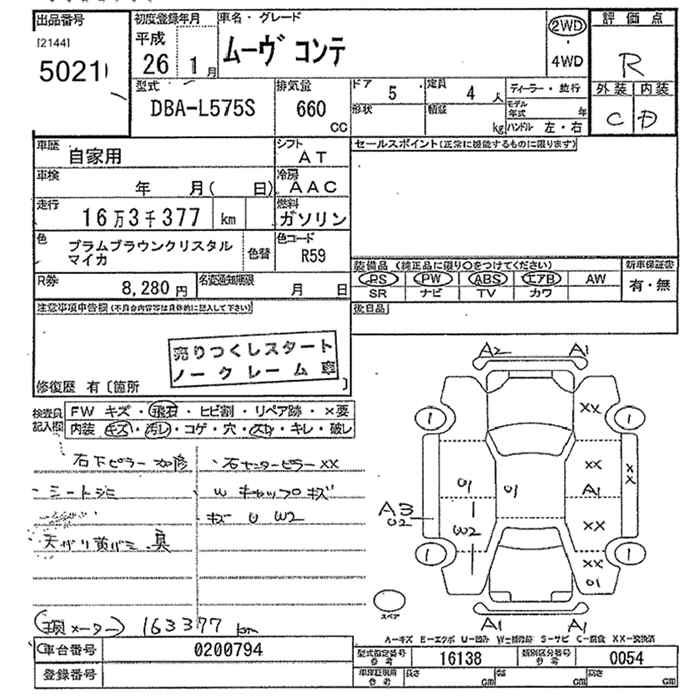 出品番号
[2144]
5021
初度登録年月
平成
26年 1月
車名・グレード
ムーヴ コンテ
2WD
・
4WD
評価点
R
外装 内装
C D
型式
DBA-L575S
排気量
660
CC
ドア 5
定員 4 人
形状
積載 kg
ディーラー・並行
モデル年式 年
ハンドル 左・右
車歴 自家用
シフト AT
セールスポイント(正常に機能するものに限ります)
車検 年 月( 日)
冷房 AAC
走行 16万3千377 km
燃料 ガソリン
色 プラムブラウンクリスタル
マイカ
色替
色コード R59
装備品(純正品に限り〇をつけてください)
新車保証書
PS PW ABS エアB AW
SR ナビ TV カワ
有・無
R券 8,280円
名変通知期限 月 日
後日品
注意事項申告欄(不具合内容等は具体的に記入して下さい)
売りつくしスタート
ノークレーム車
修復歴 有〔箇所 〕
検査員記入欄
FW キズ・飛石・ヒビ割・リペア跡・×要
内装 キズ・汚れ・コゲ・穴・スレ・キレ・破レ
右下ピラー
・右センターピラー XX
・シートシミ
W キャップ キズ
キズ U W2
天ガリ黄バミ
現メーター 163377 km
A2 A1
1 1
XX
XX
XX
A1
U1
U1
A3
U2
W2
XX
XX
U1
1 1
A1 A1
スペア
A-キズ E-エクボ U-凹み W-補修跡 S-サビ C-腐食 XX-交換済
車台番号 0200794
型式指定番号
参考
16138
類別区分番号
参考
0054
登録番号
車庫証明用
参考
長さ cm
幅 cm
高さ cm